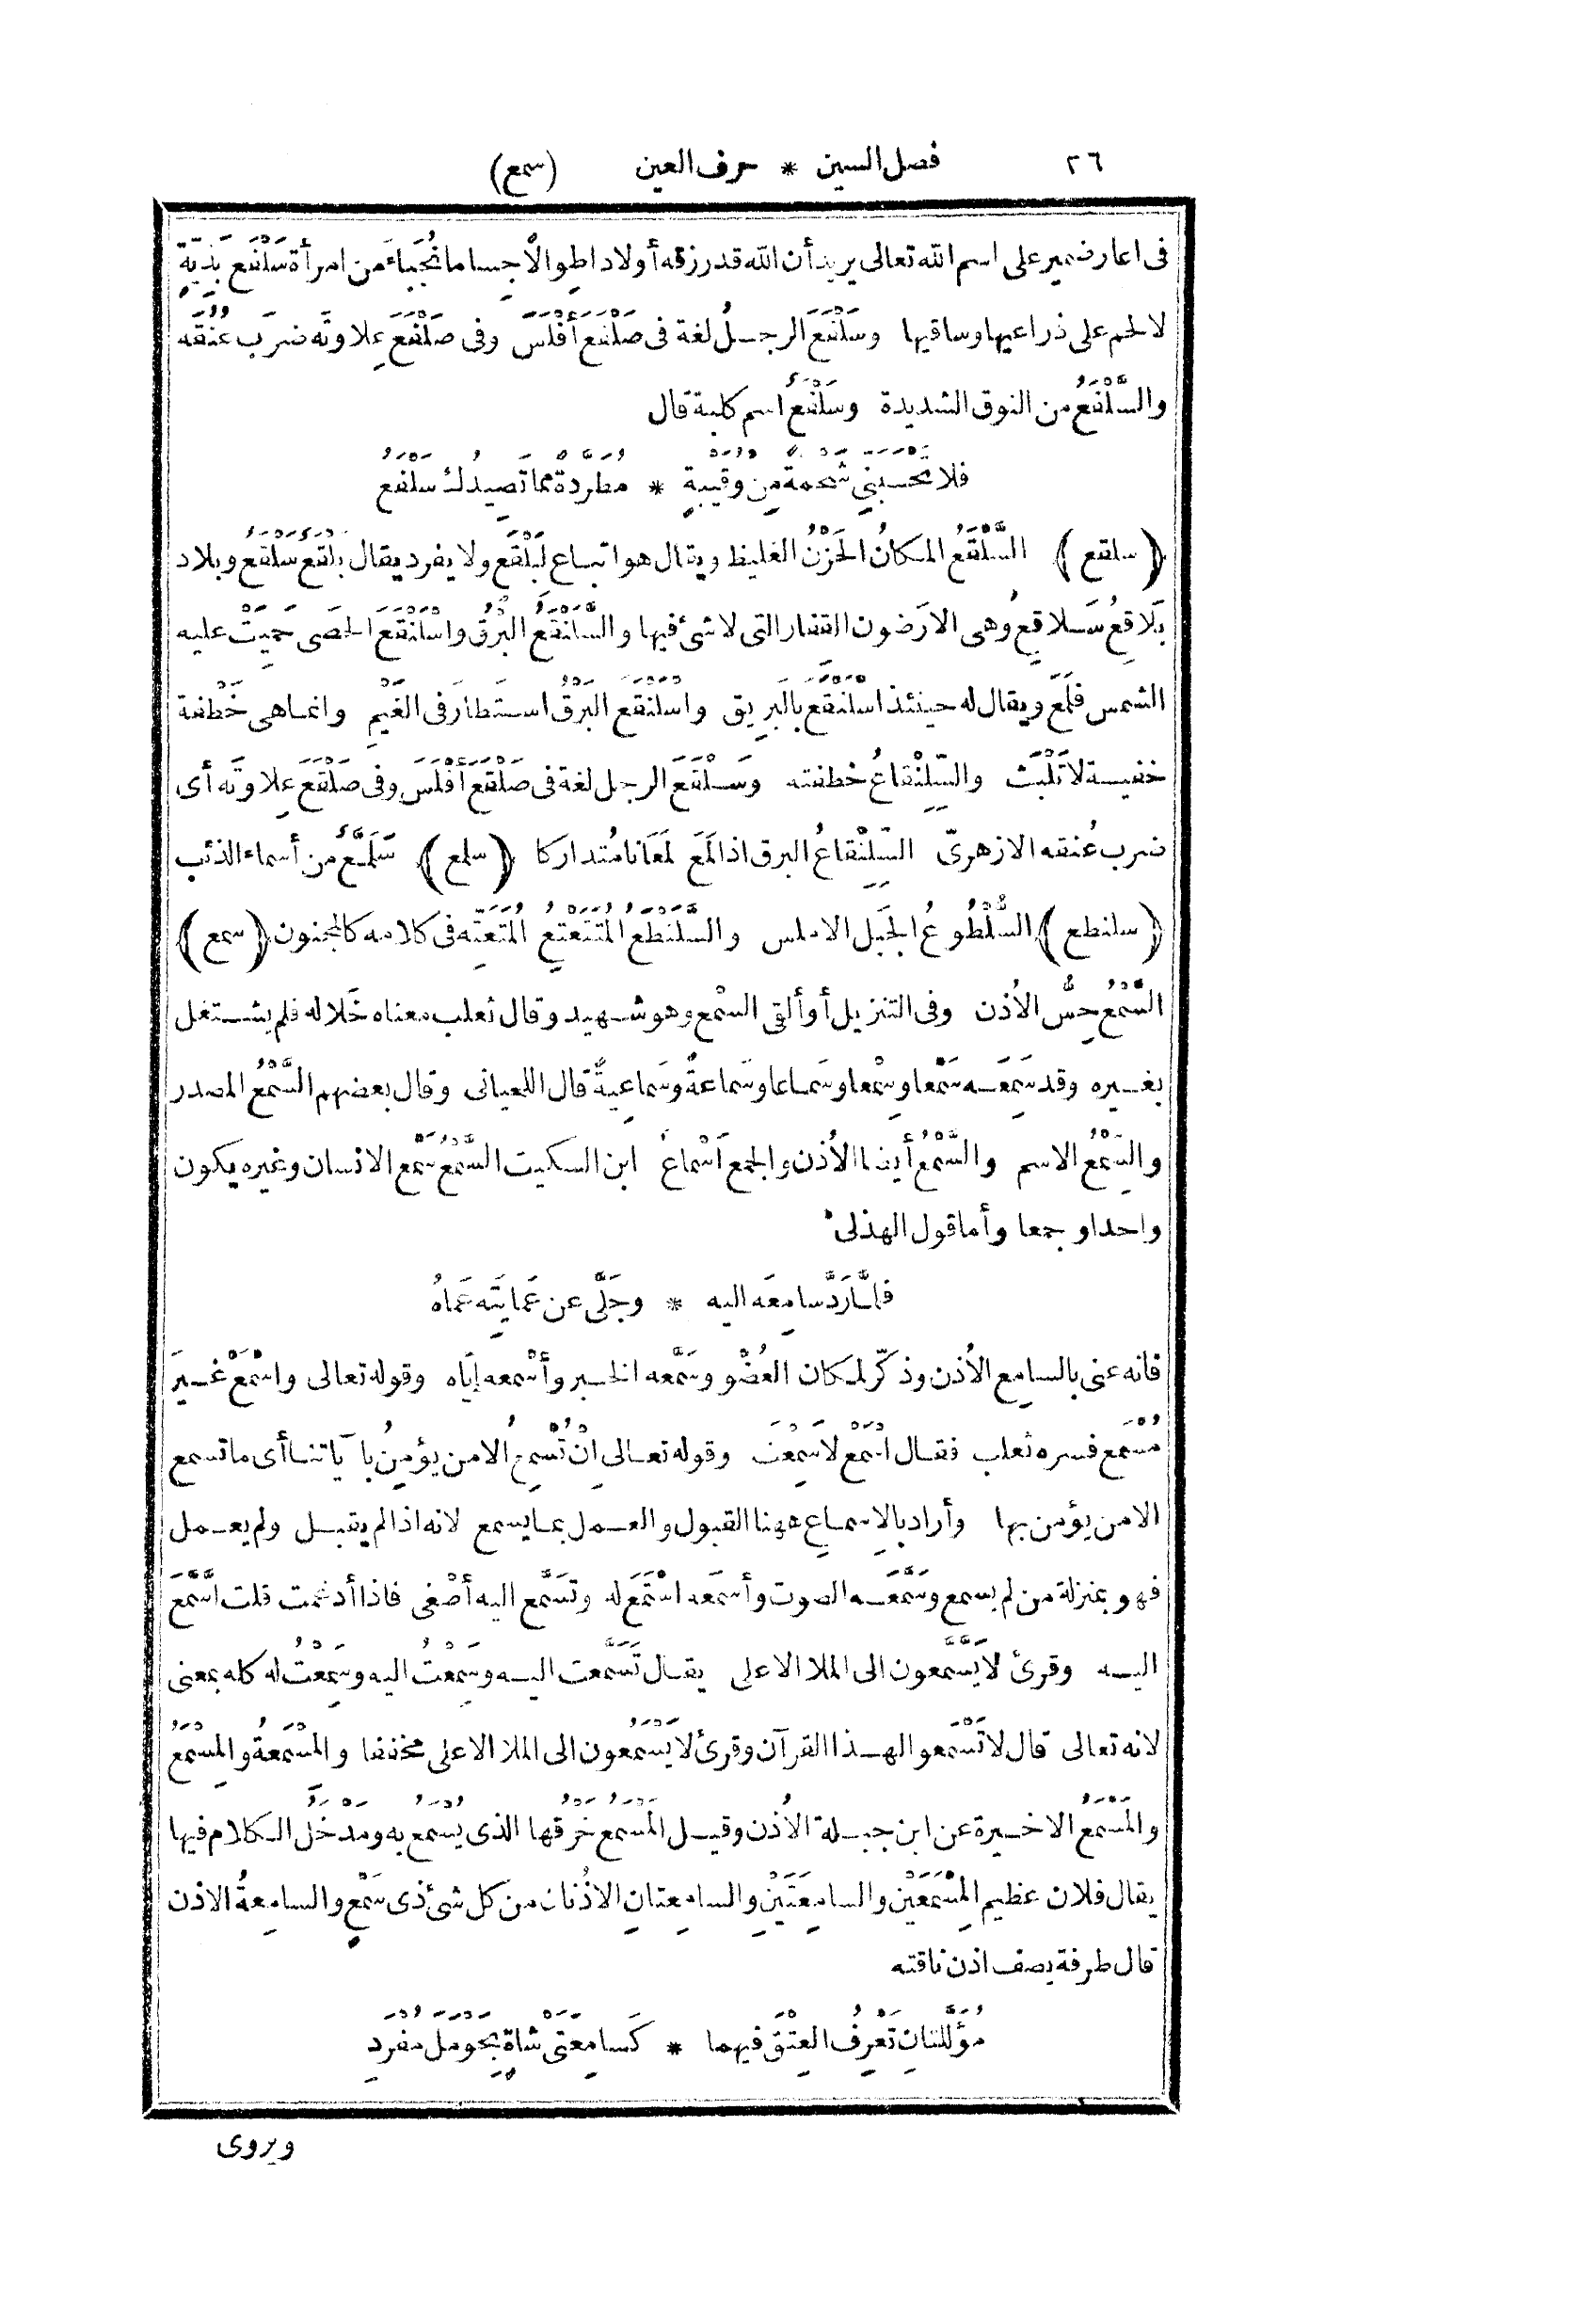 ٢٦ فصل السين * حرف العين (سمع)
فى اعا رضمير على اسم الله تعالى يريد أن الله قد رزقه أولادا طوالا جساما نُجَباءَ من امرأة سَلْفَع بَذِيّةٍ
لا لحم على ذراعيها وساقيها وسَلْفَعَ الرجلُ لغة فى صَلْفَع أَفْلَسَ وفى صَلْفَعَ عِلاوتَه ضرَب عُنُقَه
والسَّلْفَعُ من النوق الشديدة وسَلْفَعُ اسم كلبة قال
فلا تَحْسَبَنِّي شَحْمةً مِن وُقَيْبةٍ * مُطَرَّدةً مما تَصِيدُك سَلْفَعُ
(سلقع) السَّلْقَعُ المكانُ الحَزْنُ الغليظ ويقال هو اتباع لَبَلْقَع ولا يفرد يقال بَلْقَع سَلْقَع وبلاد
بَلاقِعُ سَلاقِعُ وهى الارَضون القفار التى لا شئ فيها والسَّلَنْقَع البَرْقُ واسْلَنْقَعَ الحَصَى حَمِيَتْ عليه
الشمس فلَمَع ويقال له حينئذ اسْلَنْقَع بالبَرِيق واسْلَنْقَعَ البرْقُ استَطارَ فى الغَيْمِ وانما هى خَطْفة
خفيسة لا تَلْبَث والسِّلِنْقاعُ خطفته وسَلْقَعَ الرجل لغة فى صَلْقَع أَفْلَسَ وفى صَلْقَعَ عِلاوتَه أى
ضرب عُنقه الازهرىّ السِّلِنْقاعُ البرق اذا لَمَعَ لَمَعَانا مُتداركا (سلع) سَلَمَّعٌ من أسماء الذئب
(سلنطع) السُّلْطُوعُ الجَبل الاملس والسَّلَنْطَعُ المُتَتَعْتِعُ المُتَعَتِّه فى كلامه كالمجنون (سمع)
السَّمْعُ حِسُّ الأُذن وفى التنزيل أو ألقى السمْع وهو شهيد وقال ثعلب معناه خَلا له فلم يشتغل
بغيره وقد سَمِعَه سَمْعا وسِمْعا وسَماعا وسَماعةً وسَماعِيةً قال اللحيانى وقال بعضهم السَّمْعُ المصدر
والسِّمْعُ الاسم والسَّمْعُ أيضا الأُذن والجمع أَسْماعٌ ابن السكيت السَّمْعُ سَمْع الانسان وغيره يكون
واحدا وجمعا وأما قول الهذلى
فلمَّا رَدَّ سامِعَه اليه * وجَلَّى عن عَمايَتِه عَماهُ
فانه عنى بالسامِع الأُذن وذكّر لمكان العُضْو وسَمَّعه الخبر وأَسْمعه إيّاه وقوله تعالى واسْمَعْ غيرَ
مُسْمَع فسره ثعلب فقال اسْمَعْ لا سَمِعْتَ وقوله تعالى اِنْ تُسْمِعُ الا من يؤمِنُ بآياتنا أى ما تسمع
الا من يؤمن بها وأراد بالاِسماعِ ههنا القبول والعمل بما يسمع لانه اذا لم يقبل ولم يعمل
فهو بمنزلة من لم يسمع وسَمَّعَه الصوت وأسمَعَه اسْتَمَعَ له وتَسَمَّع اليه أصْغى فاذا أدغمت قلت اسَّمَّعَ
اليه وقرئ لا يَسَّمَّعون الى الملا الاعلى يقال تَسَمَّعت اليه وسَمِعْتُ اليه وسَمِعْتُ له كله بمعنى
لانه تعالى قال لا تَسْمَعوا لهذا القرآن وقرئ لا يَسْمَعُون الى الملا الاعلى مخففا والمِسْمَعةُ والمِسْمَعُ
والمَسْمَعُ الاخيرة عن ابن جبلة الأُذن وقيل المَسْمَعُ خَرْقُها الذى يُسْمَعُ به ومَدْخَلُ الكلام فيها
يقال فلان عظيم المِسْمَعَيْن والسامِعَتَيْنِ والسامِعتانِ الاذُنان من كل شئ ذى سَمْعٍ والسامِعةُ الاذن
قال طرفة يصف اذن ناقته
مُؤَلَّلتانِ تَعْرِفُ العِتْقَ فيهما * كَسامِعَتَىْ شاةٍ بِحَوْمَلَ مُفْرَدِ
ويروى